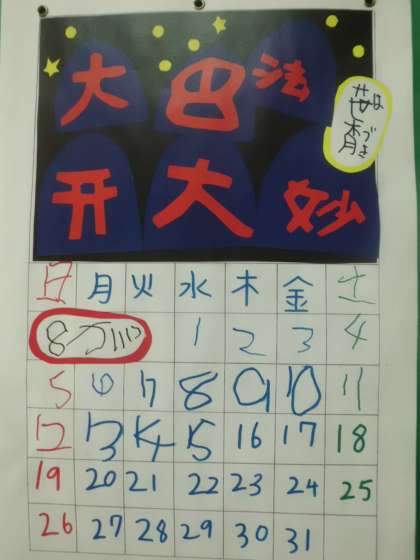 大巴法
开大妙
葉月
はづき
日 月 火 水 木 金 土
8がつ 1 2 3 4
5 6 7 8 9 10 11
12 13 14 15 16 17 18
19 20 21 22 23 24 25
26 27 28 29 30 31